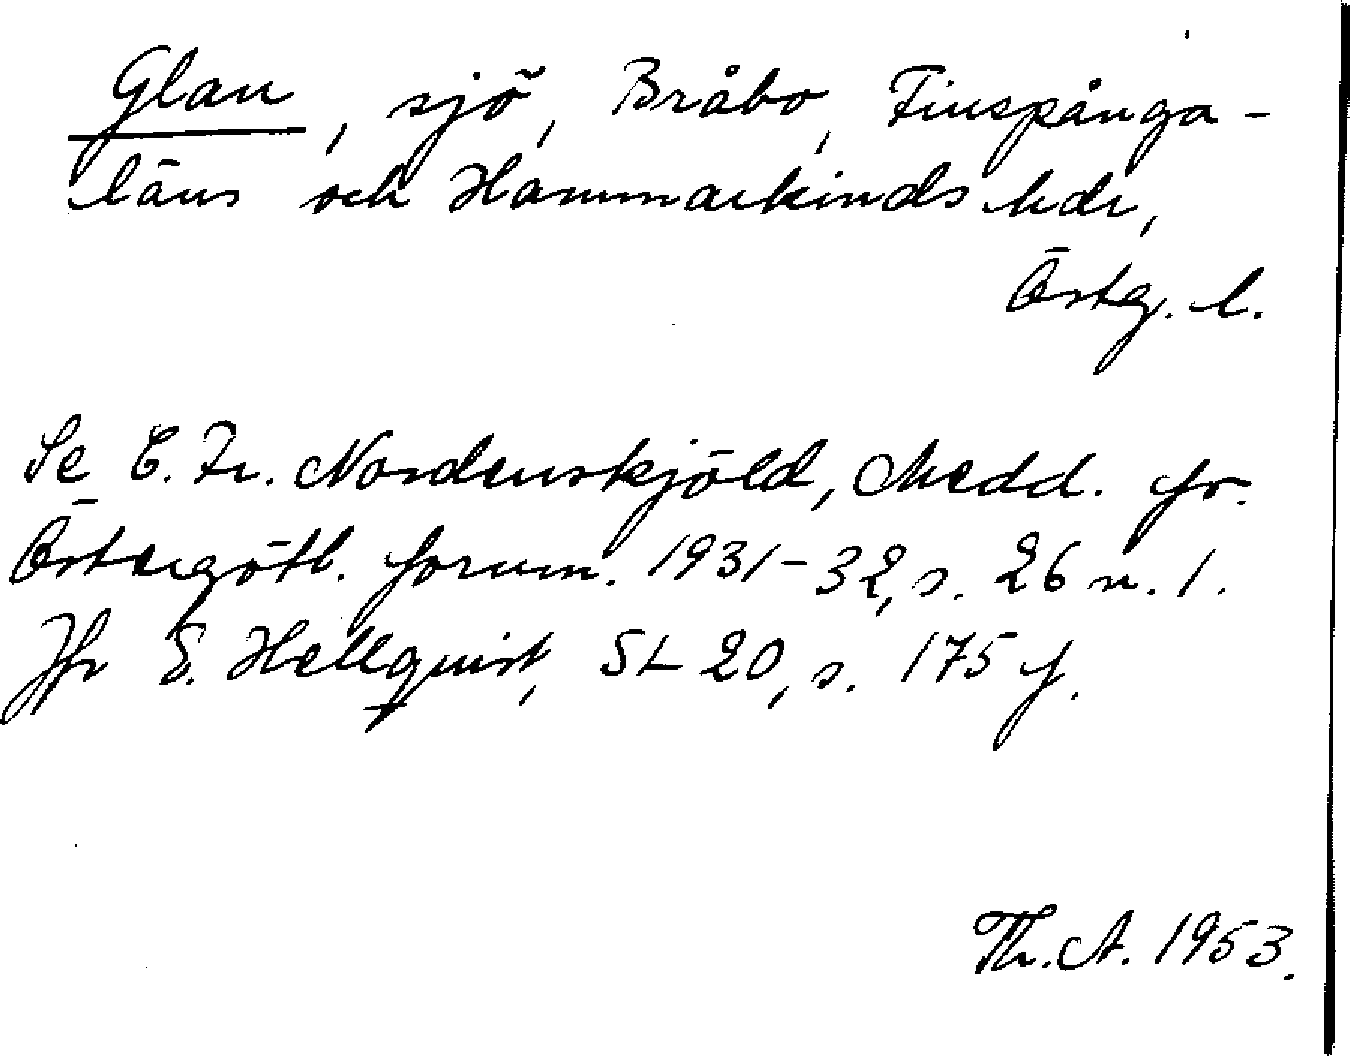 Glan, sjö, Bråbo, Finspånga-
läns och Hammarkinds hdr,
Östg. l.
Se C. Fr. Nordenskjöld, Medd. fr.
Östergötl. fornm. 1931-32, s. 26 n. 1.
Jfr E. Hellquist, SL 20, s. 175 f.
Th. A. 1953.